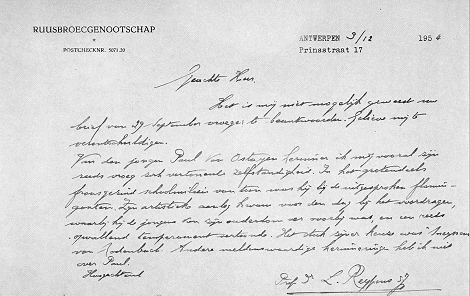 RUUSBROECGENOOTSCHAP
*
POSTCHECKNR. 5071.20
ANTWERPEN 3/12 1954
Prinsstraat 17
Geachte Heer,
Het is mij niet mogelijk geweest uw
brief van 29 September vroeger te beantwoorden. Gelieve mij te
verontschuldigen.
Van den jongen Paul Van Ostayen herinner ik mij vooral zijn
reeds vroeg zich vertonende zelfstandigheid. In het
fransgezind van toen was hij bij de uitgesproken flamin-
ganten. Zijn artistieke aanleg kwam voor den dag bij het voordragen,
waarbij hij de jongens van zijn ouderdom ver voorbij was, en een reeds
opvallend temperament verried. Het stuk zijner keuze was "
van Rodenbach. Andere meldenswaardige herinneringen heb ik niet
over Paul.
Hoogachtend
Prof. Dr L. Reypens SJ